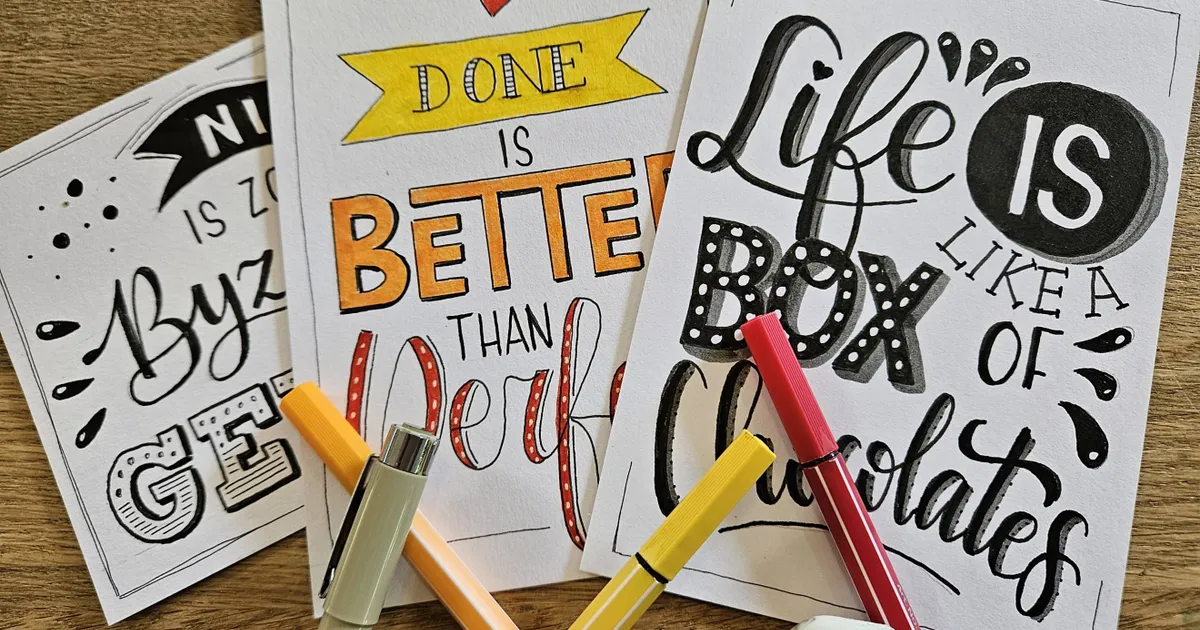 NI
IS ZO
Byz
GE
DONE
IS
BETTE
THAN
Perf
Life IS
LIKE A
BOX OF
Chocolates